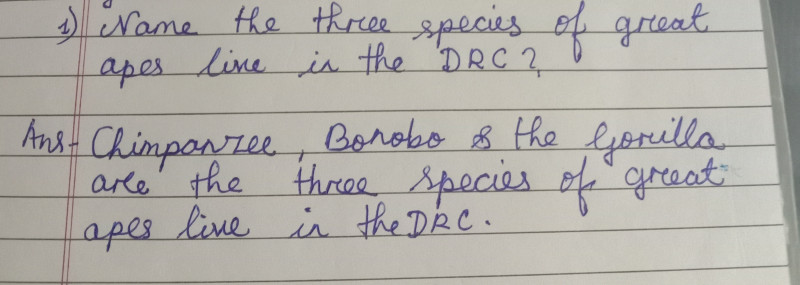 1) Name the three species of great
apes live in the DRC?
Ans- Chimpanzee, Bonobo & the Gorilla
are the three species of great
apes live in the DRC.